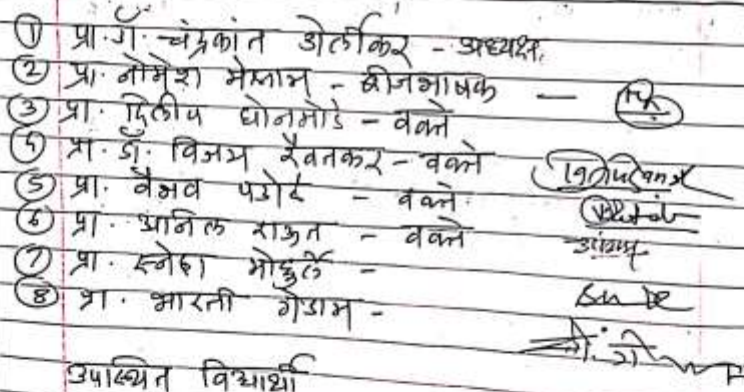 ① प्रा. डॉ. चंद्रकांत डोर्लीकर - अध्यक्ष
② प्रा. नोमेश मेश्राम - बीजभाषक —
③ प्रा. दिलीप घोनमोडे - वक्ते
④ प्रा. डॉ. विजय रैवतकर - वक्ते
⑤ प्रा. वैभव पडोळे - वक्ते
⑥ प्रा. अनिल राऊत - वक्ते
⑦ प्रा. स्नेहा मोहुर्ले -
⑧ प्रा. भारती गेडाम -
उपस्थित विद्यार्थी